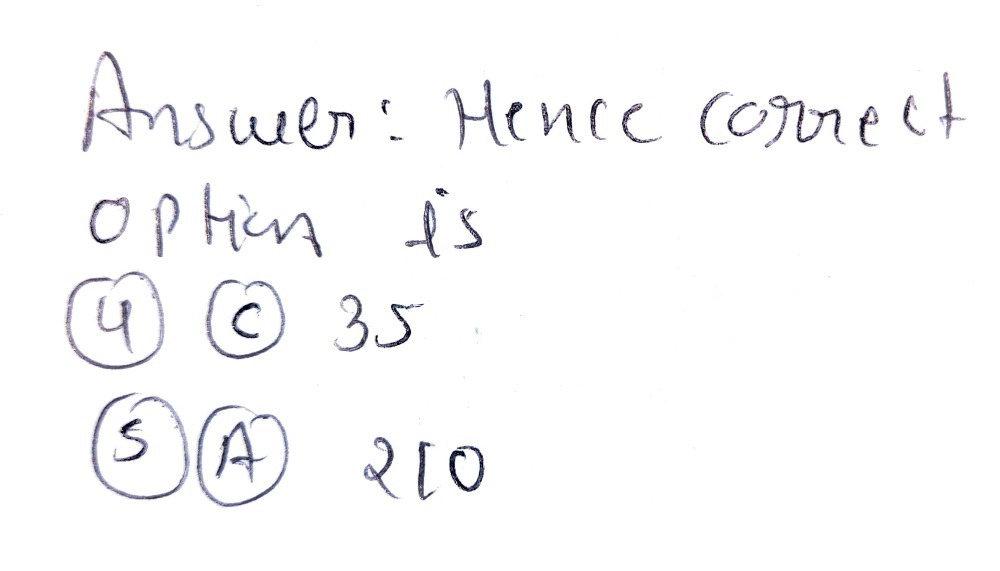 Answer: Hence correct
option is
4 C 35
5 A 210